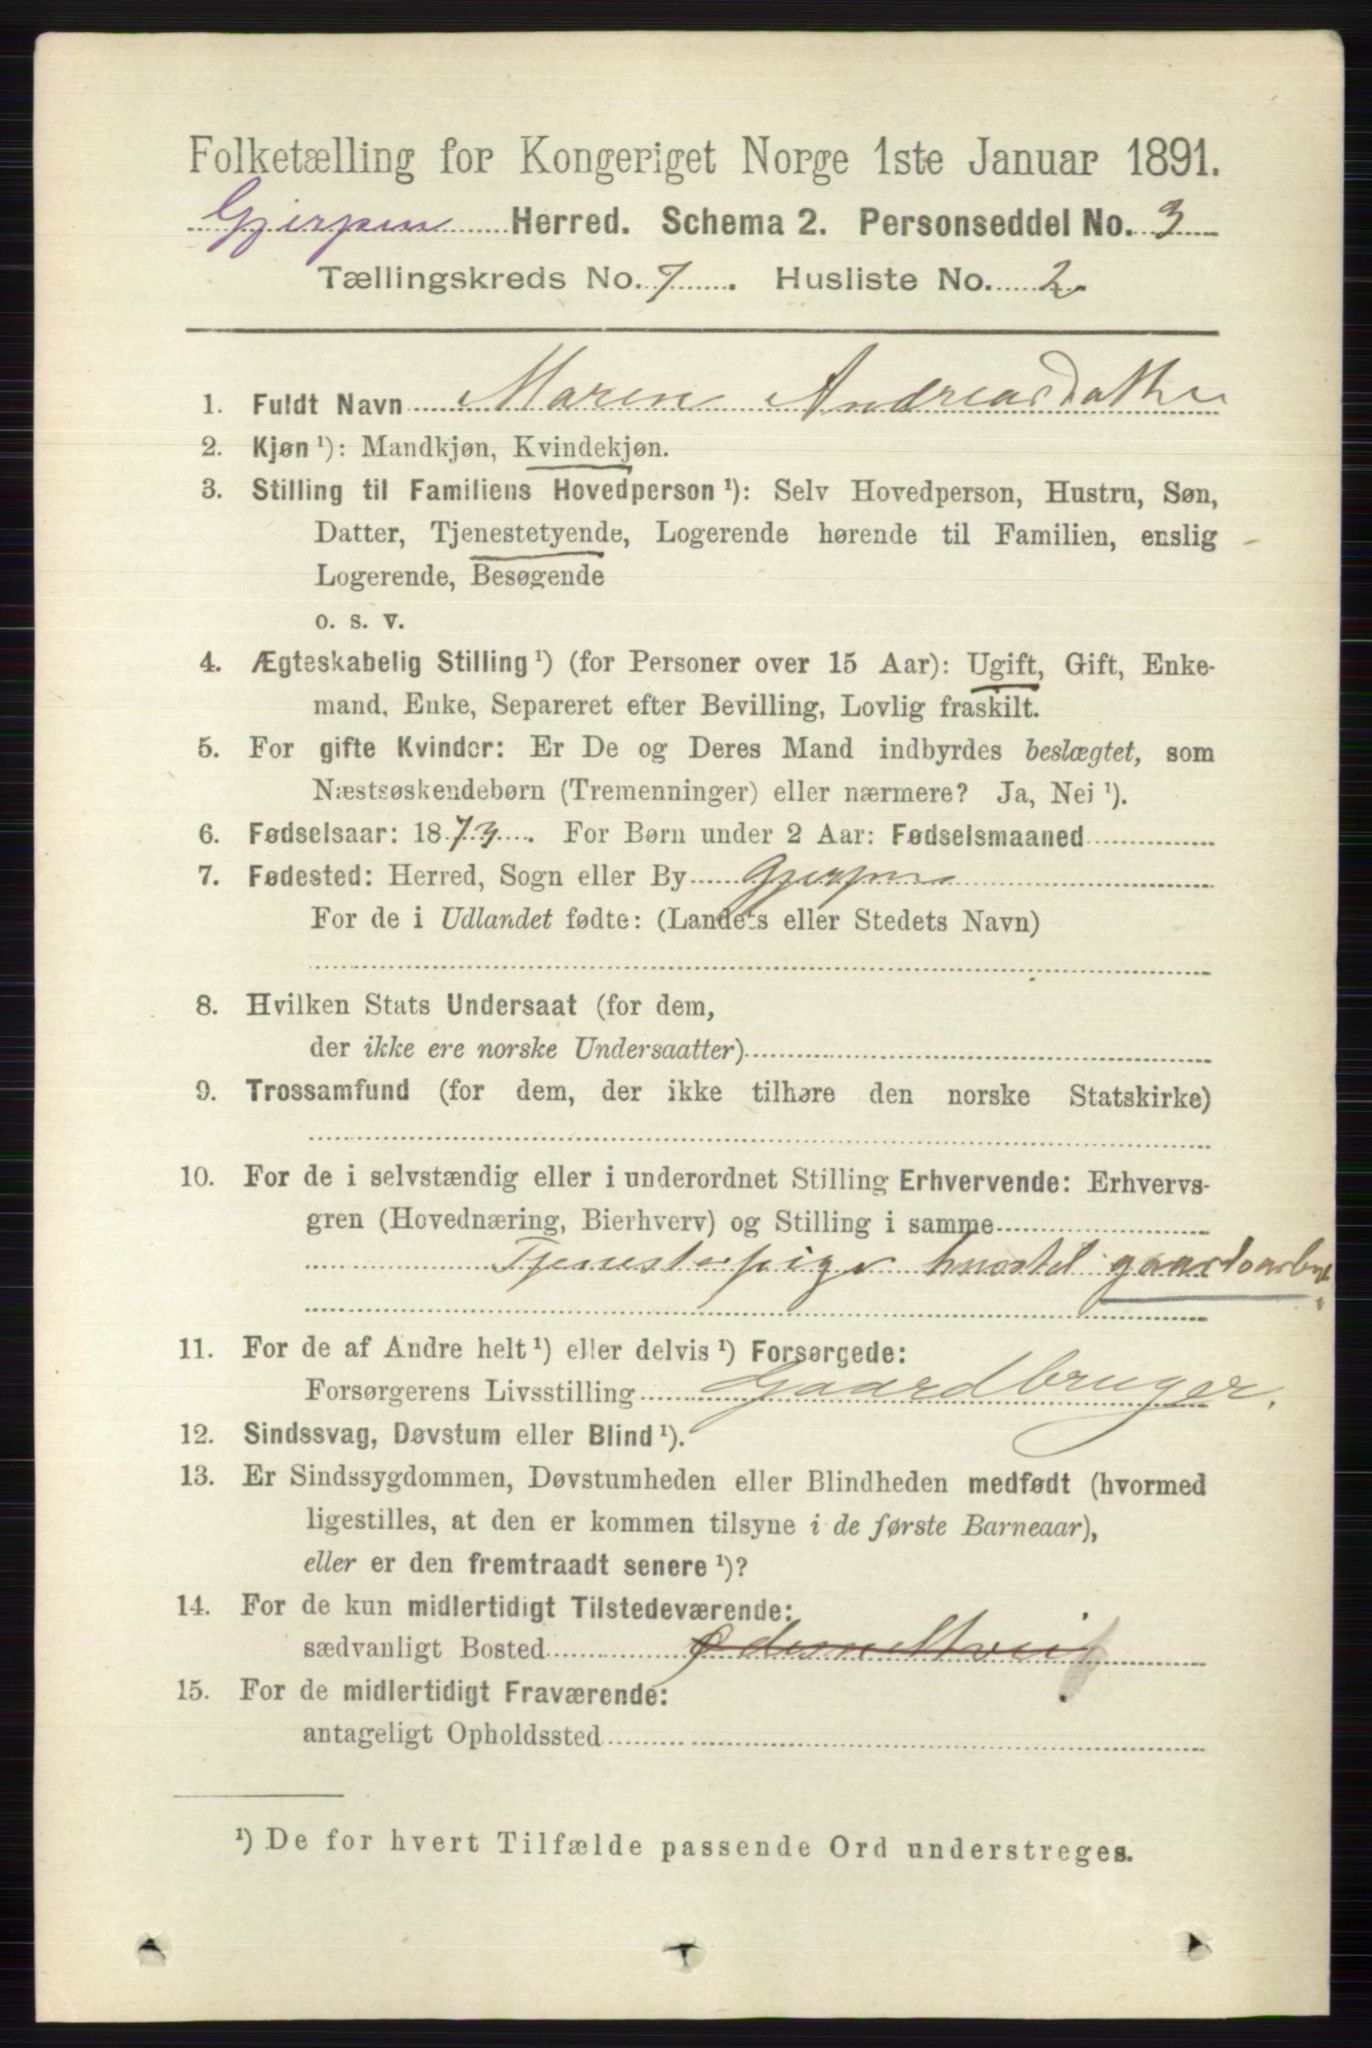 Folketælling for Kongeriget Norge 1ste Januar 1891.
Gjerpen Herred. Schema 2. Personseddel No. 3
Tællingskreds No. 7. Husliste No. 2
1. Fuldt Navn Maren Andreasdatter
2. Kjøn ¹): Mandkjøn, Kvindekjøn.
3. Stilling til Familiens Hovedperson ¹): Selv Hovedperson, Hustru, Søn,
Datter, Tjenestetyende, Logerende hørende til Familien, enslig
Logerende, Besøgende
o. s. v.
4. Ægteskabelig Stilling ¹) (for Personer over 15 Aar): Ugift, Gift, Enke-
mand, Enke, Separeret efter Bevilling, Lovlig fraskilt.
5. For gifte Kvinder: Er De og Deres Mand indbyrdes beslægtet, som
Næstsøskendebørn (Tremenninger) eller nærmere? Ja, Nei ¹).
6. Fødselsaar: 1873. For Børn under 2 Aar: Fødselsmaaned
7. Fødested: Herred, Sogn eller By Gjerpen
For de i Udlandet fødte: (Landets eller Stedets Navn)
8. Hvilken Stats Undersaat (for dem,
der ikke ere norske Undersaatter)
9. Trossamfund (for dem, der ikke tilhøre den norske Statskirke)
10. For de i selvstændig eller i underordnet Stilling Erhvervende: Erhvervs-
gren (Hovednæring, Bierhverv) og Stilling i samme
Tjenestepige gaardsarb
11. For de af Andre helt ¹) eller delvis ¹) Forsørgede:
Forsørgerens Livsstilling Gaardbruger.
12. Sindssvag, Døvstum eller Blind ¹).
13. Er Sindssygdommen, Døvstumheden eller Blindheden medfødt (hvormed
ligestilles, at den er kommen tilsyne i de første Barneaar),
eller er den fremtraadt senere ¹)?
14. For de kun midlertidigt Tilstedeværende:
sædvanligt Bosted
15. For de midlertidigt Fraværende:
antageligt Opholdssted
¹) De for hvert Tilfælde passende Ord understreges.